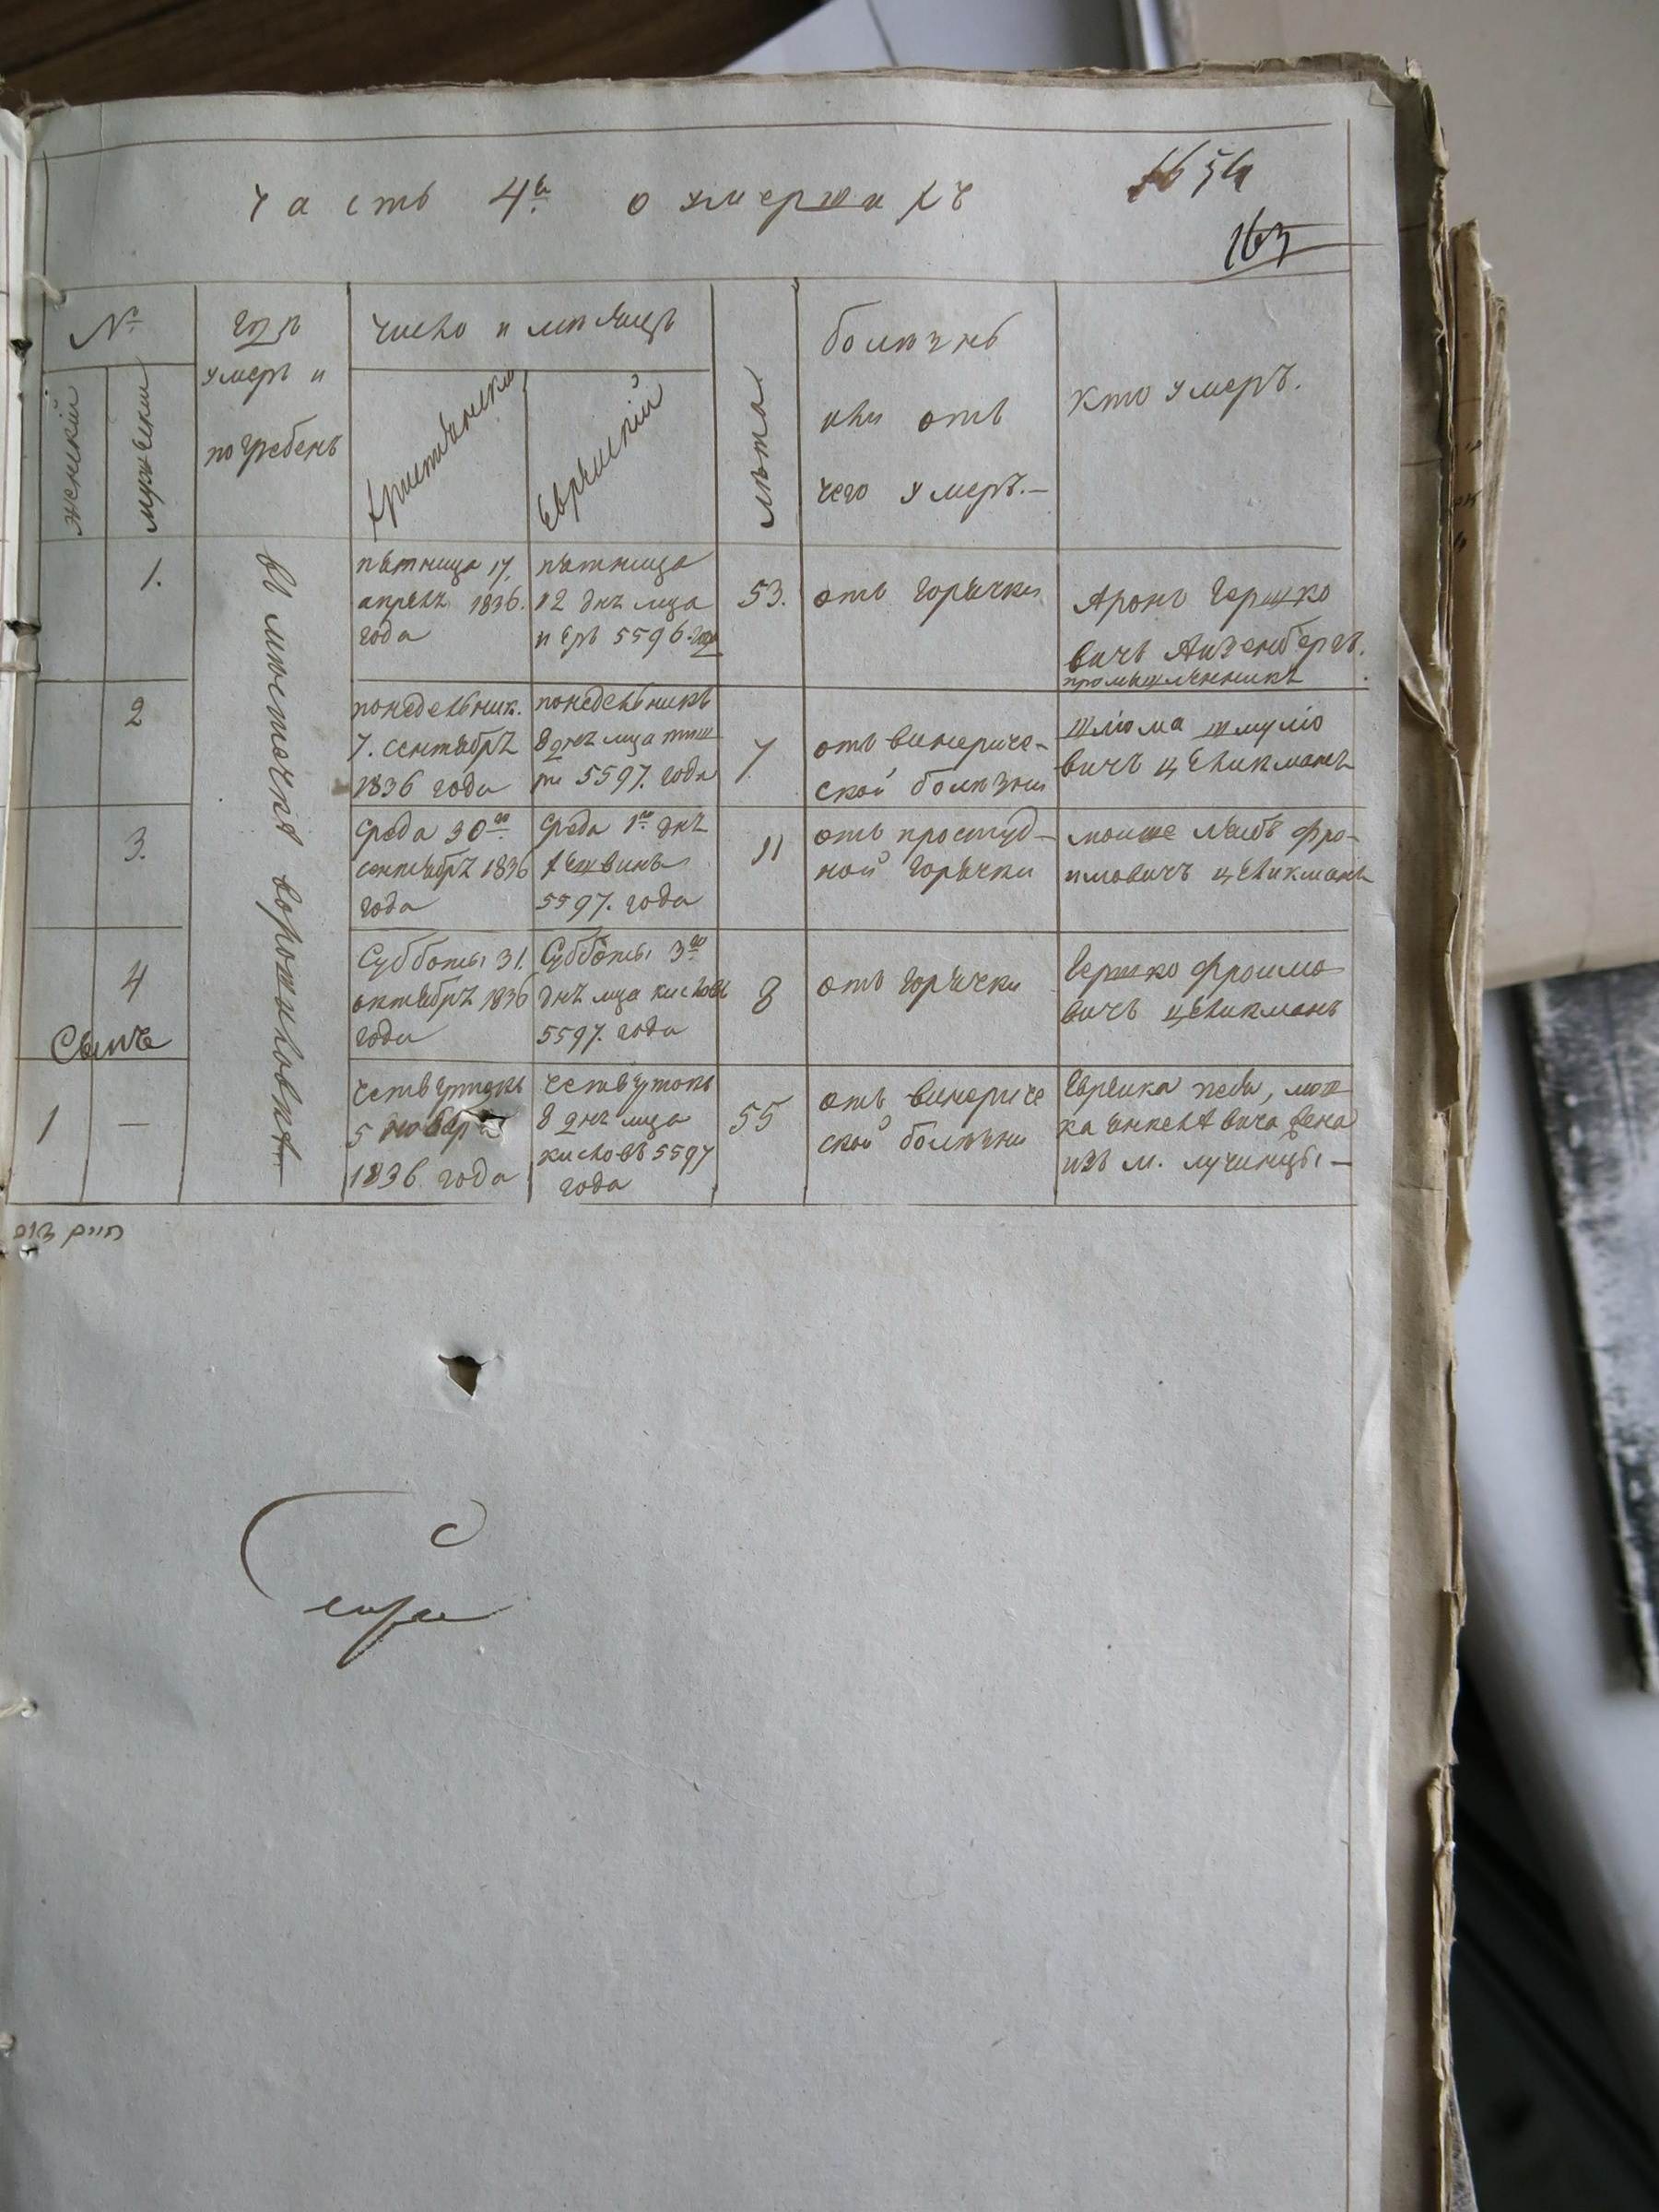 часть 4я о умершихъ
54
163
№
женскій
мужески
гдѣ
умеръ и
погребенъ
число и мѣсяцъ
христіянски
Еврейскій
лѣта
болѣзнь
или отъ
чего умеръ.—
кто умеръ.
въ мѣстечкѣ ворошиловкѣ
1.
пятница 17,
апреля 1836.
года
пятница
12 дня м҃ца
иеръ 5596 года
53.
отъ горячки
Аронъ Гершко
вичъ Аизенбергъ.
промышленникъ
2
понедельник.
7. сентября
1836 года
понедельникъ
8 дня м҃ца тиш
ри 5597. года
7
отъ винериче-
ской болѣзни
шлюма шмулiо
вичъ целикманъ
3.
среда 30го
сентября 1836
года
среда 1го дня
хешвинъ
5597. года
11
отъ простуд-
ной горячки
мошше леибъ фро-
имовичъ целикманъ
4
Субботы 31.
октября 1836
года
Субботы 3го
дня м҃ца кислова
5597. года
8
отъ горячки
Гершко фроимо
вичъ целикманъ
1
—
четвертокъ
5 ноября
1836. года
четвертокъ
8 дня м҃ца
кисловъ 5597
года
55
отъ винериче
ской болѣзни
Еврейка песя, мош
ка янкелевича жена
изъ м. лучинцы —